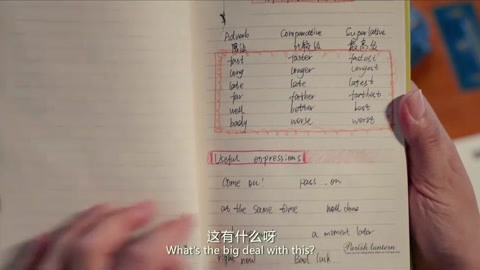 Adverb Comparative Superlative
原级 比较级 最高级
fast faster fastest
long longer longest
late late latest
far farther farthest
well better best
badly worse worst
Useful expressions
Come on! pass on
at the same time well done
a moment later
right now Bad luck
这有什么呀
What's the big deal with this?